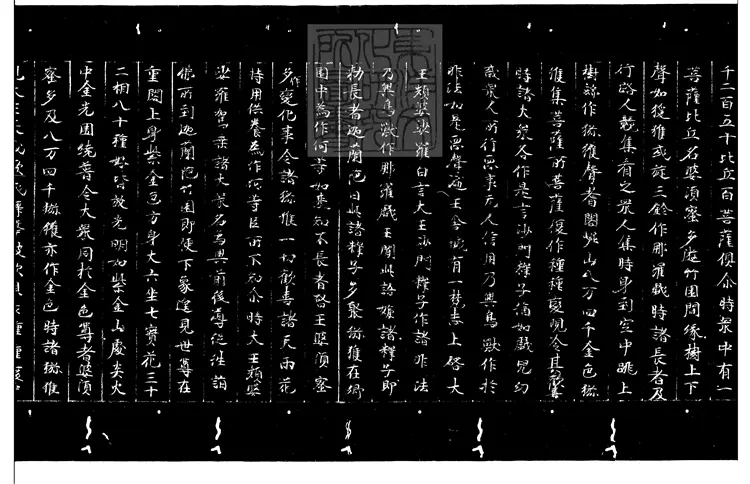 千二百五十比丘百菩薩俱尒時衆中有一
菩薩比丘名婆湏蜜多遊竹園間緣樹上下
聲如猨猴或旋三鈴作那羅戲時諸長者及
行路人競集看之衆人集時身到空中跳上
樹端作猕猴聲耆闍崛山八万四千金色猕
猴集菩薩所菩薩復作種種變現令其歡喜
時諸大衆各作是言沙門釋子猶如戲兒幻
惑衆人所行惡事无人信用乃與鳥獸作於
非法如是惡聲遍王舍城有一梵志上啓大
王頻婆娑羅白言大王沙門釋子作諸非法
乃與鳥獸作那羅戲王聞此語嫌諸釋子即
勑長者迦蘭陁曰此諸釋子多聚猕猴在卿
園中為作何等如來知不長者啓王婆湏蜜
多作變化事令諸猕猴一切歡喜諸天雨花
持用供養為作何等臣所不知尒時大王頻婆
娑羅駕乘諸大衆名寫與前後導從往詣
佛所到迦蘭陁竹園即便下象遥見世尊在
重閣上身紫金色方身丈六坐七寶花三十
二相八十種好皆放光明如紫金山處央火
中金光圍繞普令大衆同於金色尊者婆湏
蜜多及八万四千猕猴亦作金色時諸猕猴